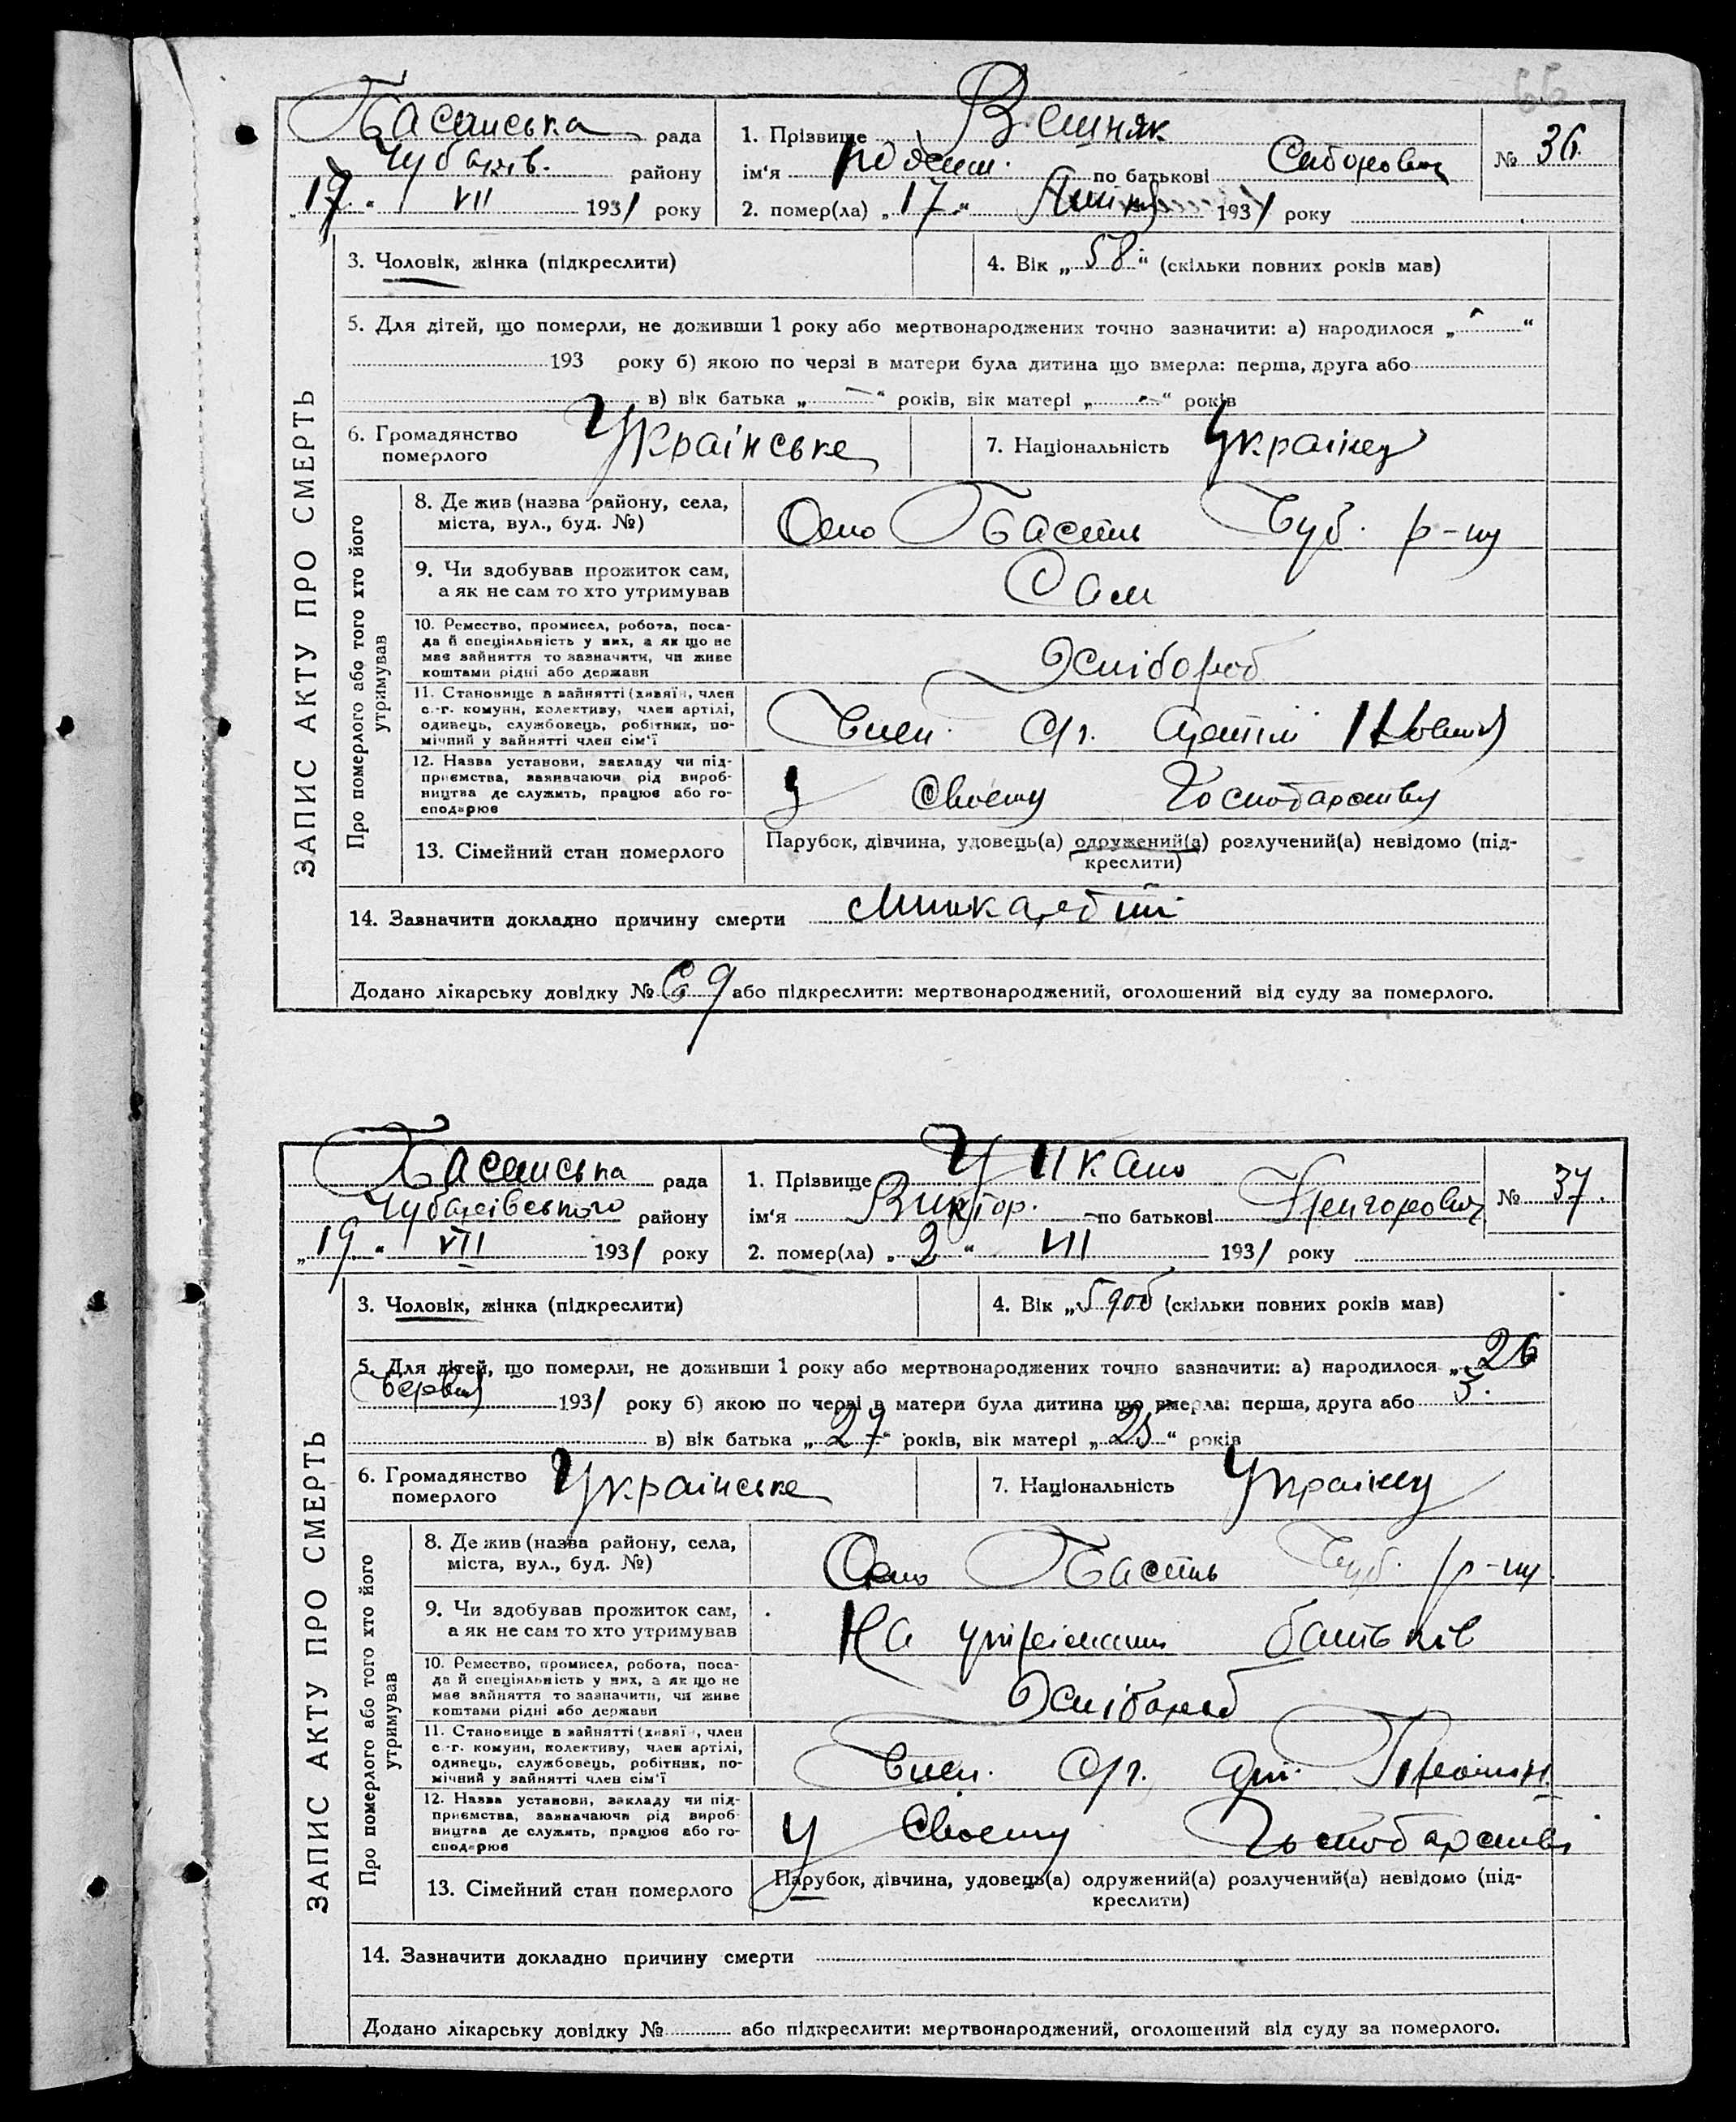 66
Басанська рада
Чубарів. району
„19“ VII 1931 року
1. Прізвище
ім‘я по батькові
№ 36.
2. помер(ла) „17“ 1931 року
ЗАПИС АКТУ ПРО СМЕРТЬ
3. Чоловік, жінка (підкреслити)
4. Вік „58“ (скільки повних років мав)
5. Для дітей, що померли, не доживши 1 року або мертвонароджених точно зазначити: а) народилося „-“
193 року б) якою по черзі в матери була дитина що вмерла: перша, друга або
в) вік батька „—“ років, вік матері „-“ років
6. Громадянство померлого Українське
7. Національність Українец
Про померлого або того хто його утримував
8. Де жив (назва району, села,
міста, вул., буд. №)
Село Басань Чуб. р-ну
9. Чи здобував прожиток сам,
а як не сам то хто утримував
Сам
10. Ремество, промисел, робота, поса-
да й спеціяльність у них, а як що не
має зайняття то зазначити, чи живе
коштами рідні або держави
Хлібороб
11. Становище в зайнятті (хазяїн, член
с.-г. комуни, колективу, член артілі,
одинець, службовець, робітник, по-
мічний у зайнятті член сім‘ї
Член. С/г. Артілі
12. Назва установи, закладу чи під-
приємства, зазначаючи рід вироб-
ництва де служить, працює або го-
сподарює
У своєму Господарстві
13. Сімейний стан померлого
Парубок, дівчина, удовець(а) одружений(а) розлучений(а) невідомо (під-
креслити)
14. Зазначити докладно причину смерти
Додано лікарську довідку № 69 або підкреслити: мертвонароджений, оголошений від суду за померлого.
Басанська рада
Чубарівського району
„19“ VII 1931 року
1. Прізвище
ім‘я Виктор. по батькові Григорович
№ 37.
2. помер(ла) „2“ VII 1931 року
ЗАПИС АКТУ ПРО СМЕРТЬ
3. Чоловік, жінка (підкреслити)
4. Вік „5 доб (скільки повних років мав)
5. Для дітей, що померли, не доживши 1 року або мертвонароджених точно зазначити: а) народилося „26
Червня 1931 року б) якою по черзі в матери була дитина що вмерла: перша, друга або 5.
в) вік батька „27“ років, вік матері „25“ років
6. Громадянство померлого Українське
7. Національність Українец
Про померлого або того хто його утримував
8. Де жив (назва району, села,
міста, вул., буд. №)
Село Басань Чуб. р-ну
9. Чи здобував прожиток сам,
а як не сам то хто утримував
На утріманні батьків
10. Ремество, промисел, робота, поса-
да й спеціяльність у них, а як що не
має зайняття то зазначити, чи живе
коштами рідні або держави
Хлібороб
11. Становище в зайнятті (хазяїн, член
с.-г. комуни, колективу, член артілі,
одинець, службовець, робітник, по-
мічний у зайнятті член сім‘ї
Член. С/г. арт.
12. Назва установи, закладу чи під-
приємства, зазначаючи рід вироб-
ництва де служить, працює або го-
сподарює
У своєму Господарстві
13. Сімейний стан померлого
Парубок, дівчина, удовець(а) одружений(а) розлучений(а) невідомо (під-
креслити)
14. Зазначити докладно причину смерти
Додано лікарську довідку № або підкреслити: мертвонароджений, оголошений від суду за померлого.